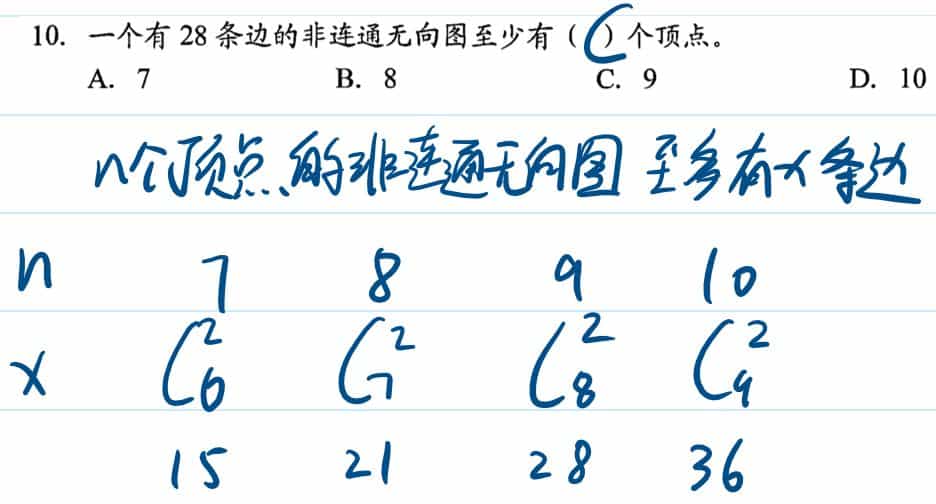 10. 一个有 28 条边的非连通无向图至少有（C）个顶点。
A. 7 B. 8 C. 9 D. 10
n个顶点的非连通无向图 至多有x条边
n 7 8 9 10
x C₆² C₇² C₈² C₉²
15 21 28 36